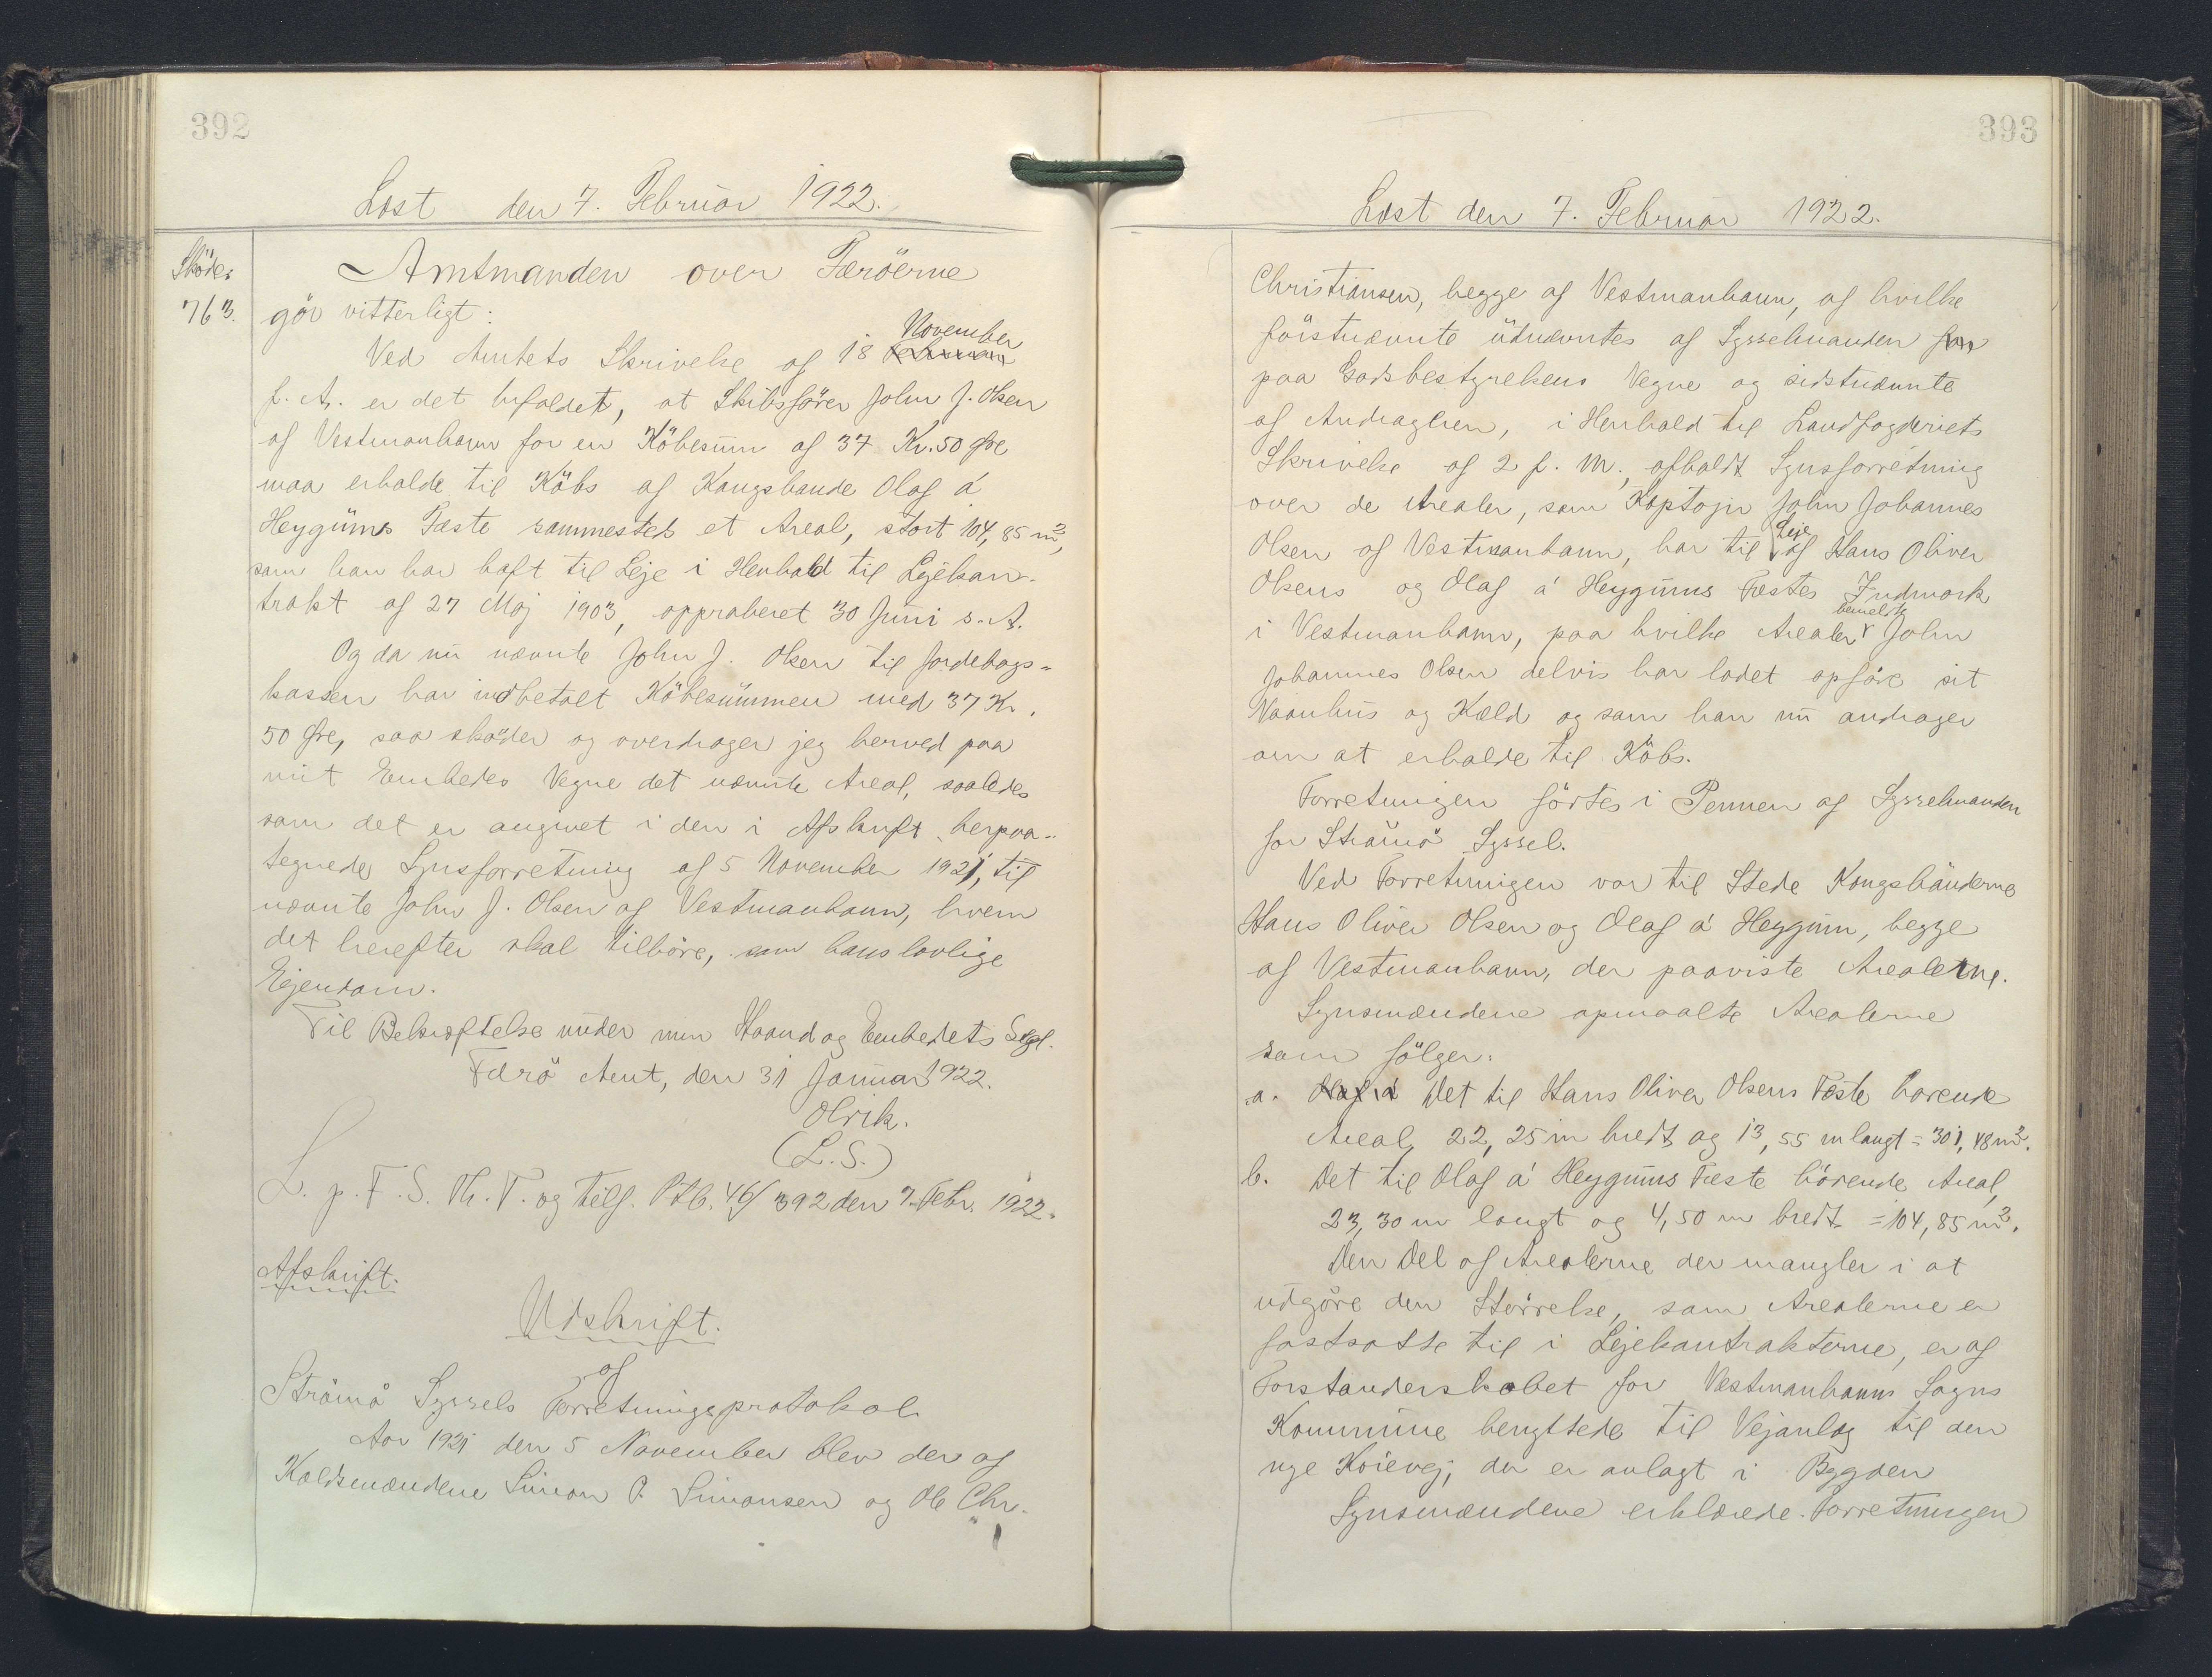 392
Læst den 7. Februar 1922.
Sköde.
763.
Amtmanden over Færöerne
gör vitterligt:
November
Ved Amtets Skrivelse af 18 Februar
f. A. er det bifaldet, at Skibsförer John J. Olsen
af Vestmanhavn for en Köbesum af 37 Kr. 50 Øre
maa erholde til Köbs af Kongsbonde Olaf á
Heygums Fæste sammesteds et Areal, stort 104,85 m²,
som han har haft til Leje i Henhold til Lejekon-
trakt af 27 Maj 1903, approberet 30 Juni s. A.
Og da nu nævnte John J. Olsen til Jordebogs-
kassen har indbetalt Köbesummen med 37 Kr.
50 Øre, saa sköder og overdrager jeg herved paa
mit Embedes Vegne det nævnte Areal, saaledes
som det er angivet i den i Afskrift herpaa-
tegnede Synsforretning af 5 November 1921, til
nævnte John J. Olsen af Vestmanhavn, hvem
det herefter skal tilhöre, som hans lovlige
Ejendom.
Til Bekræftelse under min Haand og Embedets Segl.
Færö Amt, den 31 Januar 1922.
Olrik.
(L.S.)
L. p. F. S. Th. T. og tilf. Ptb. 46/392 den 7. Febr. 1922.
Afskrift.
Udskrift.
af
Strömö Syssels Forretningsprotokol
Aar 1921 den 5 November blev der af
Koldsmændene Simon P. Simonsen og Ole Chr.
393
Læst den 7. Februar 1922.
Christiansen, begge af Vestmanhavn, af hvilke
förstnævnte udnævntes af Sysselmanden
paa Godsbestyrelsens Vegne og sidstnævnte
af Andrageren, i Henhold til Landfogderiets
Skrivelse af 2 f. M., afholdt Synsforretning
over de Arealer, som Kaptajn John Johannes
Leje
Olsen af Vestmanhavn, har til af Hans Oliver
Olsens og Olaf á Heygums Fæstes Indmark
bemeldte
i Vestmanhavn, paa hvilke Arealer John
Johannes Olsen delvis har ladet opföre sit
Vaanhus og Kæld og som han nu andrager
om at erholde til Köbs.
Forretningen förtes i Pennen af Sysselmanden
for Strömö Syssel.
Ved Forretningen var til Stede Kongsbönderne
Hans Oliver Olsen og Olaf á Heygum, begge
af Vestmanhavn, der paaviste Arealerne.
Synsmændene opmaalte Arealerne
som fölger:
a. Olaf á Det til Hans Oliver Olsens Fæste hörende
Areal, 22,25 m bredt og 13,55 m langt = 301,48 m².
b. Det til Olaf á Heygums Fæste hörende Areal,
23,30 m langt og 4,50 m bredt = 104,85 m².
Den Del af Arealerne der mangler i at
udgöre den Störrelse, som Arealerne er
fastsatte til i Lejekontrakterne, er af
Forstanderskabet for Vestmanhavns Sogns
Kommune benyttede til Vejanlæg til den
nye Köievej, der er anlagt i Bygden
Synsmændene erklærede Forretningen